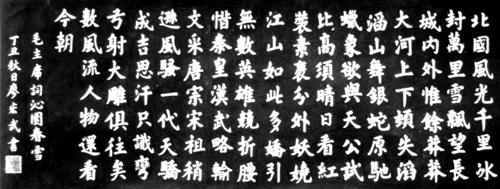 北國風光千里冰
封萬里雪飄望長
城內外惟餘莽莽
大河上下頓失滔
滔山舞銀蛇原馳
蠟象欲與天公試
比高須晴日看紅
裝素裹分外妖嬈
江山如此多嬌引
無數英雄競折腰
惜秦皇漢武略輸
文采唐宗宋祖稍
遜風騷一代天驕
成吉思汗只識彎
弓射大雕俱往矣
數風流人物還看
今朝
毛主席詞沁園春雪
丁丑秋日廖武書